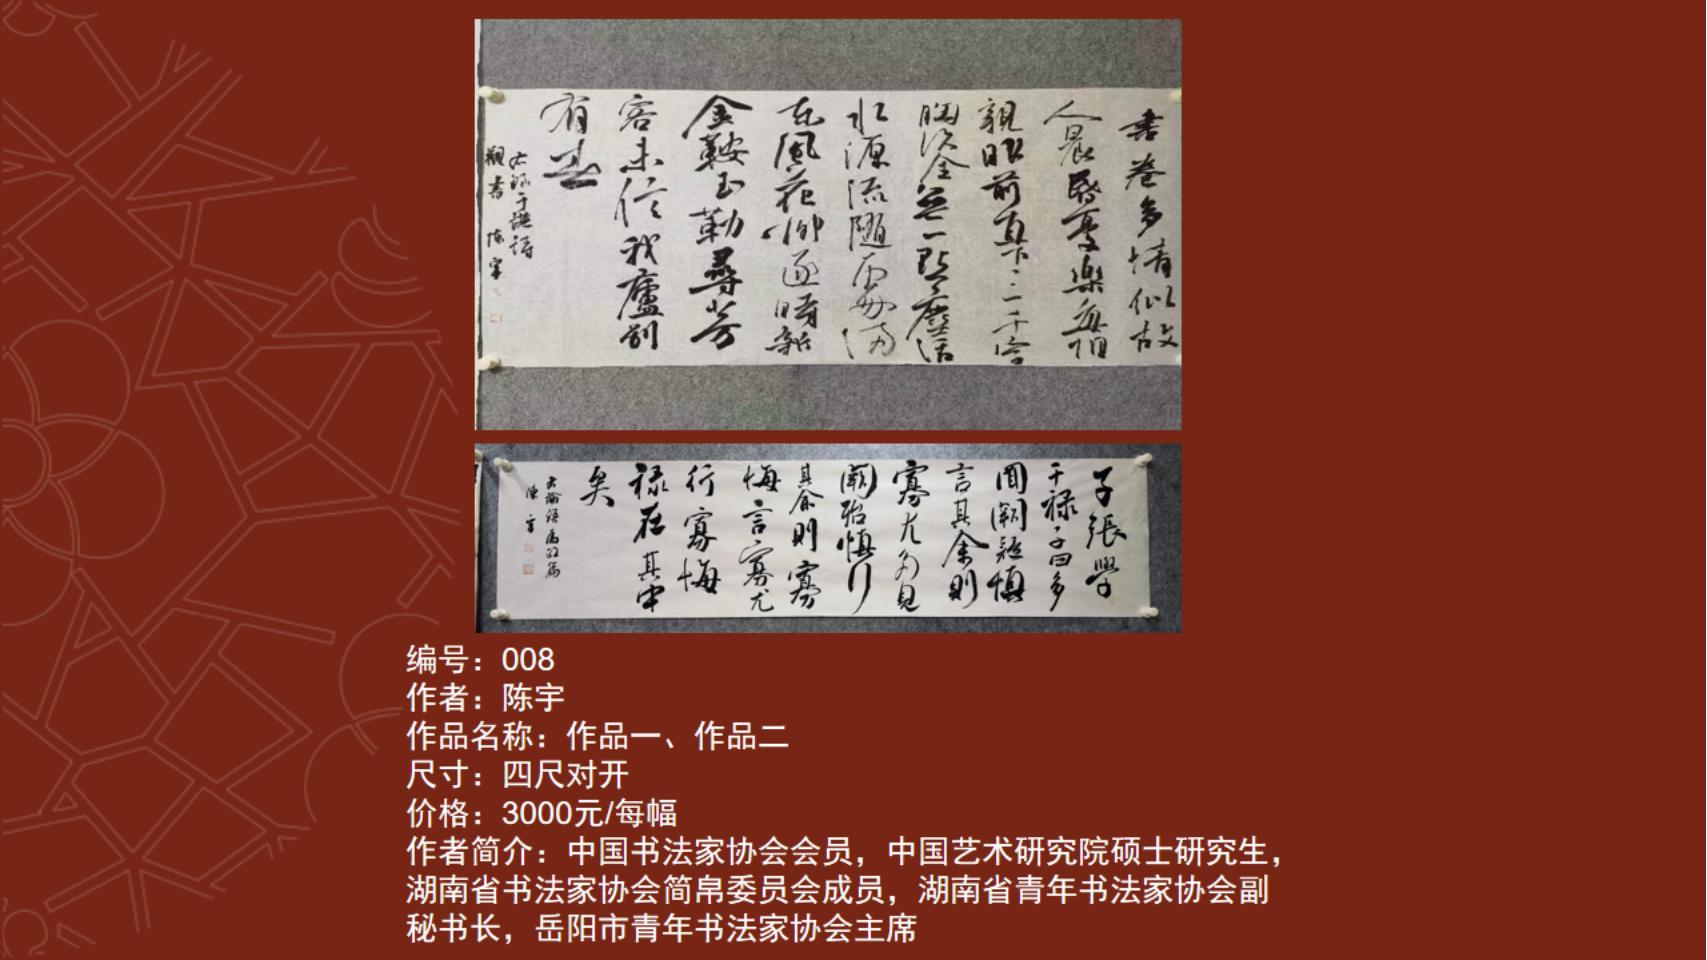 書卷多情似故
人晨昏憂樂每相
親眼前直下三千字
胸次全無一點塵活
水源流隨處滿
東風花柳逐時新
金鞍玉勒尋芳
客未信我廬別
有春
右録于謙詩
觀書 陈宇
子張學
干禄子曰多
聞闕疑慎
言其余則
寡尤多見
闕殆慎行
其余則寡
悔言寡尤
行寡悔
禄在其中
矣
右論語為政篇
陳宇
编号：008
作者：陈宇
作品名称：作品一、作品二
尺寸：四尺对开
价格：3000元/每幅
作者简介：中国书法家协会会员，中国艺术研究院硕士研究生，
湖南省书法家协会简帛委员会成员，湖南省青年书法家协会副
秘书长，岳阳市青年书法家协会主席